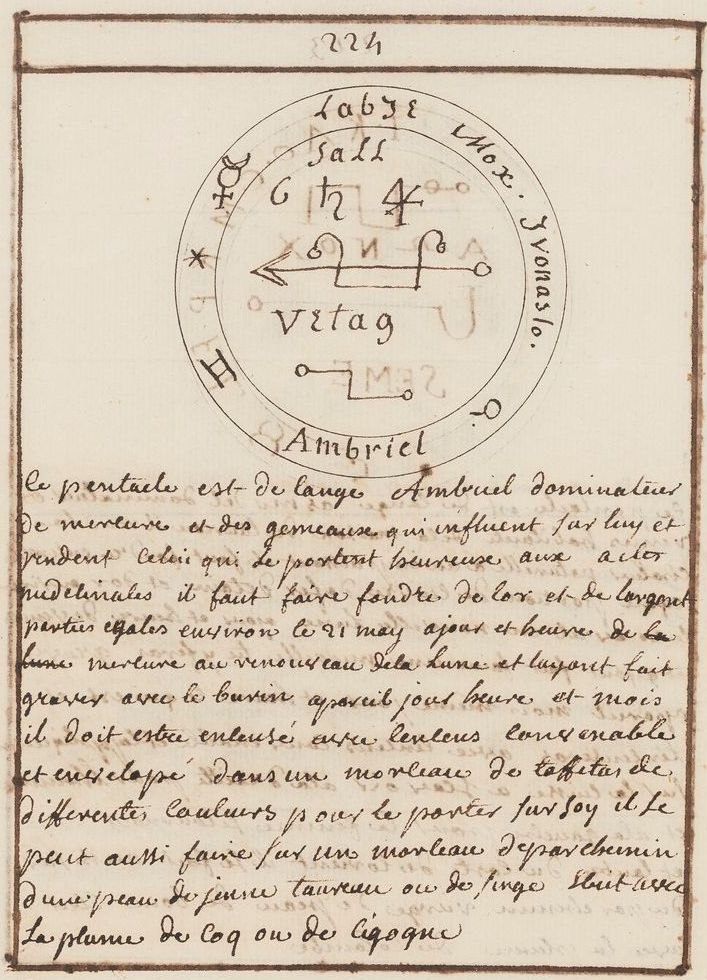 224
LabƷE
Mox.
Ivonaslo.
Sall
G
VEtag
Ambriel
le pentacle est de lange Ambriel dominateur
de mercure et des gemeaux qui influent sur luy et
rendent celui qui le portent heureuse aux actes
il faut faire fondre de lor et de largent
parties egales environ le 21 may a jour et heure de la
lune mercure au renouveau de la lune et layant fait
graver avec le burin apareil jour heure et mois
il doit estre ensensé avec lensens convenable
et envelopé dans un morceau de taffetas de
differentes couleurs pour le porter sur soy il se
peut aussi faire sur un morceau de parchemin
dune peau de jeune taureau ou de singe Ecrit avec
La plume de Coq ou de cigogne